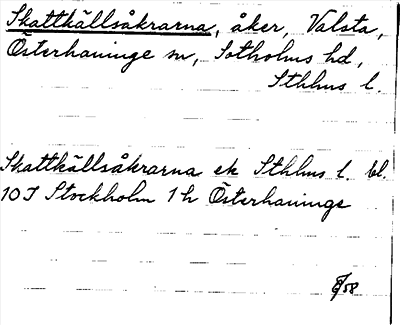 Skattkällsåkrarna, åker, Valsta,
Österhaninge sn, Sotholms hd,
Sthlms l.
Skattkällsåkrarna ek Sthlms l. bl.
10 I Stockholm 1 h Österhaninge